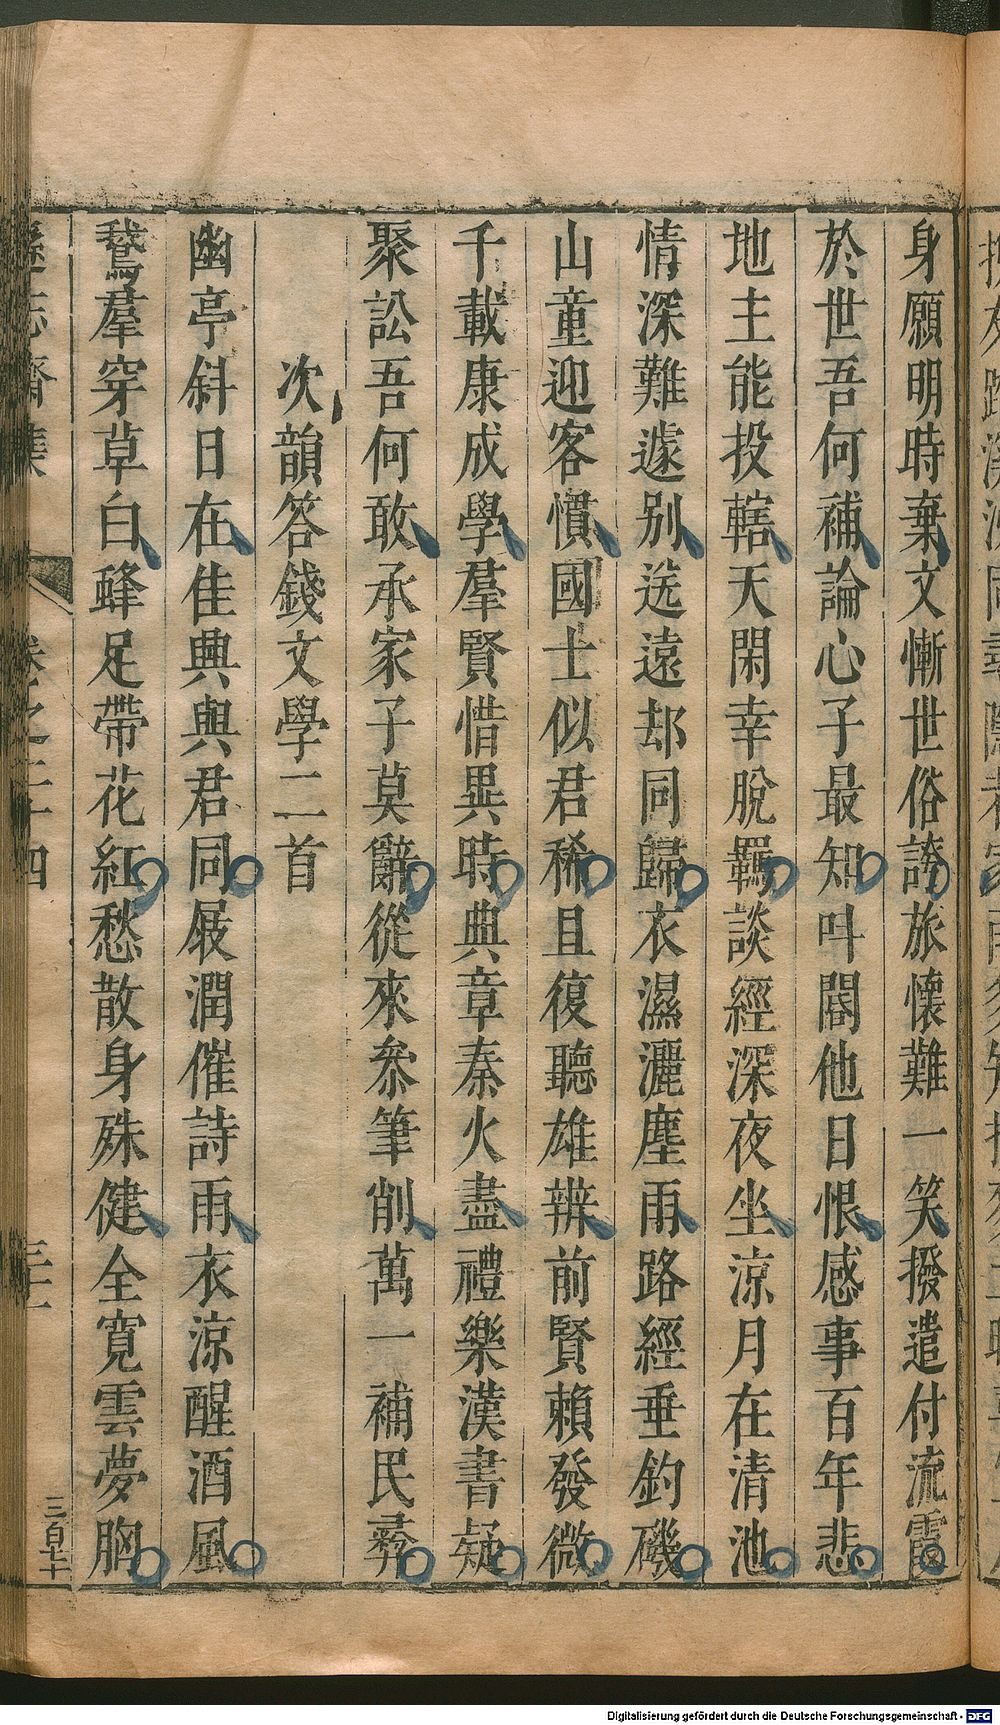 身願明時棄文慚世俗誇旅懷難一笑撥遣付流霞
於世吾何補論心子最知叫閽他日恨感事百年悲
地主能投轄天閑幸脫羈談經深夜坐涼月在清池
情深難遽别送遠却同歸衣濕灑塵雨路經垂釣磯
山童迎客慣國士似君稀且復聽雄辨前賢賴發微
千載康成學羣賢惜異時典章秦火盡禮樂漢書疑
聚訟吾何敢承家子莫辭從來叅筆削萬一補民彞
次韻答錢文學二首
幽亭斜日在佳興與君同屐潤催詩雨衣涼醒酒風
鵞羣穿草白蜂足帶花紅愁散身殊健全寬雲夢胸
遜志齋集 卷之二十四 三十一 三百七十
Digitalisierung gefördert durch die Deutsche Forschungsgemeinschaft - DFG